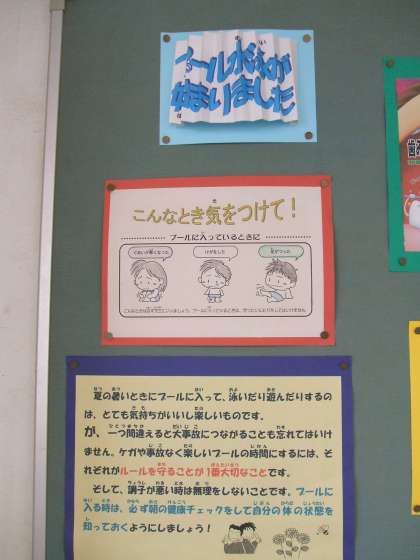 プール水泳が
始まりました
こんなとき気をつけて！
プールに入っているときに
ぐあいが悪くなった
けがをした
足がつった
夏の暑いときにプールに入って、泳いだり遊んだりするの
は、とても気持ちがいいし楽しいものです。
が、一つ間違えると大事故につながることも忘れてはいけ
ません。ケガや事故なく楽しいプールの時間にするには、そ
れぞれがルールを守ることが１番大切なことです。
そして、調子が悪い時は無理をしないことです。プールに
入る時は、必ず朝の健康チェックをして自分の体の状態を
知っておくようにしましょう！